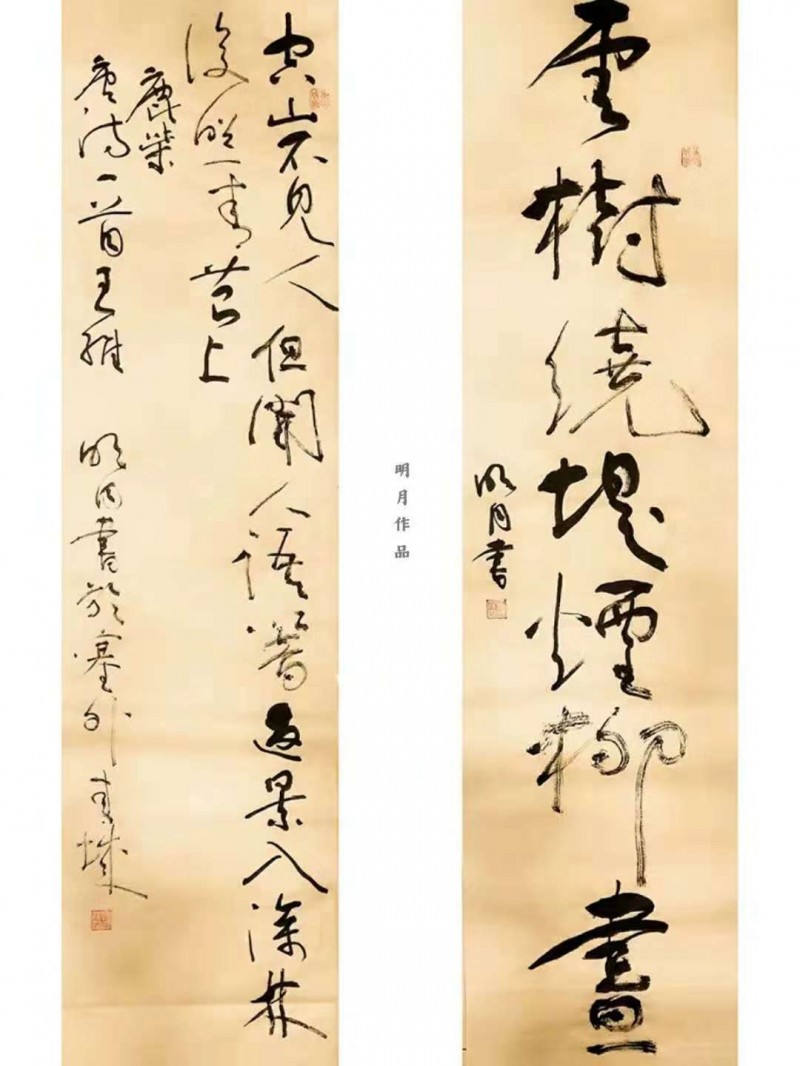 雲樹繞堤煙柳畫
明月書
明月作品
空山不見人但聞人語響返景入深林
復照青苔上
鹿柴
唐詩一首王維 明月書於塞外青城